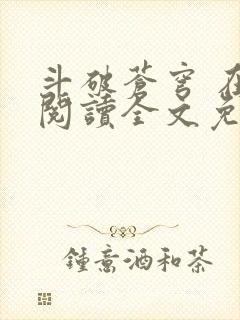 斗破蒼穹 在
閱讀全文免
鍾意酒和茶